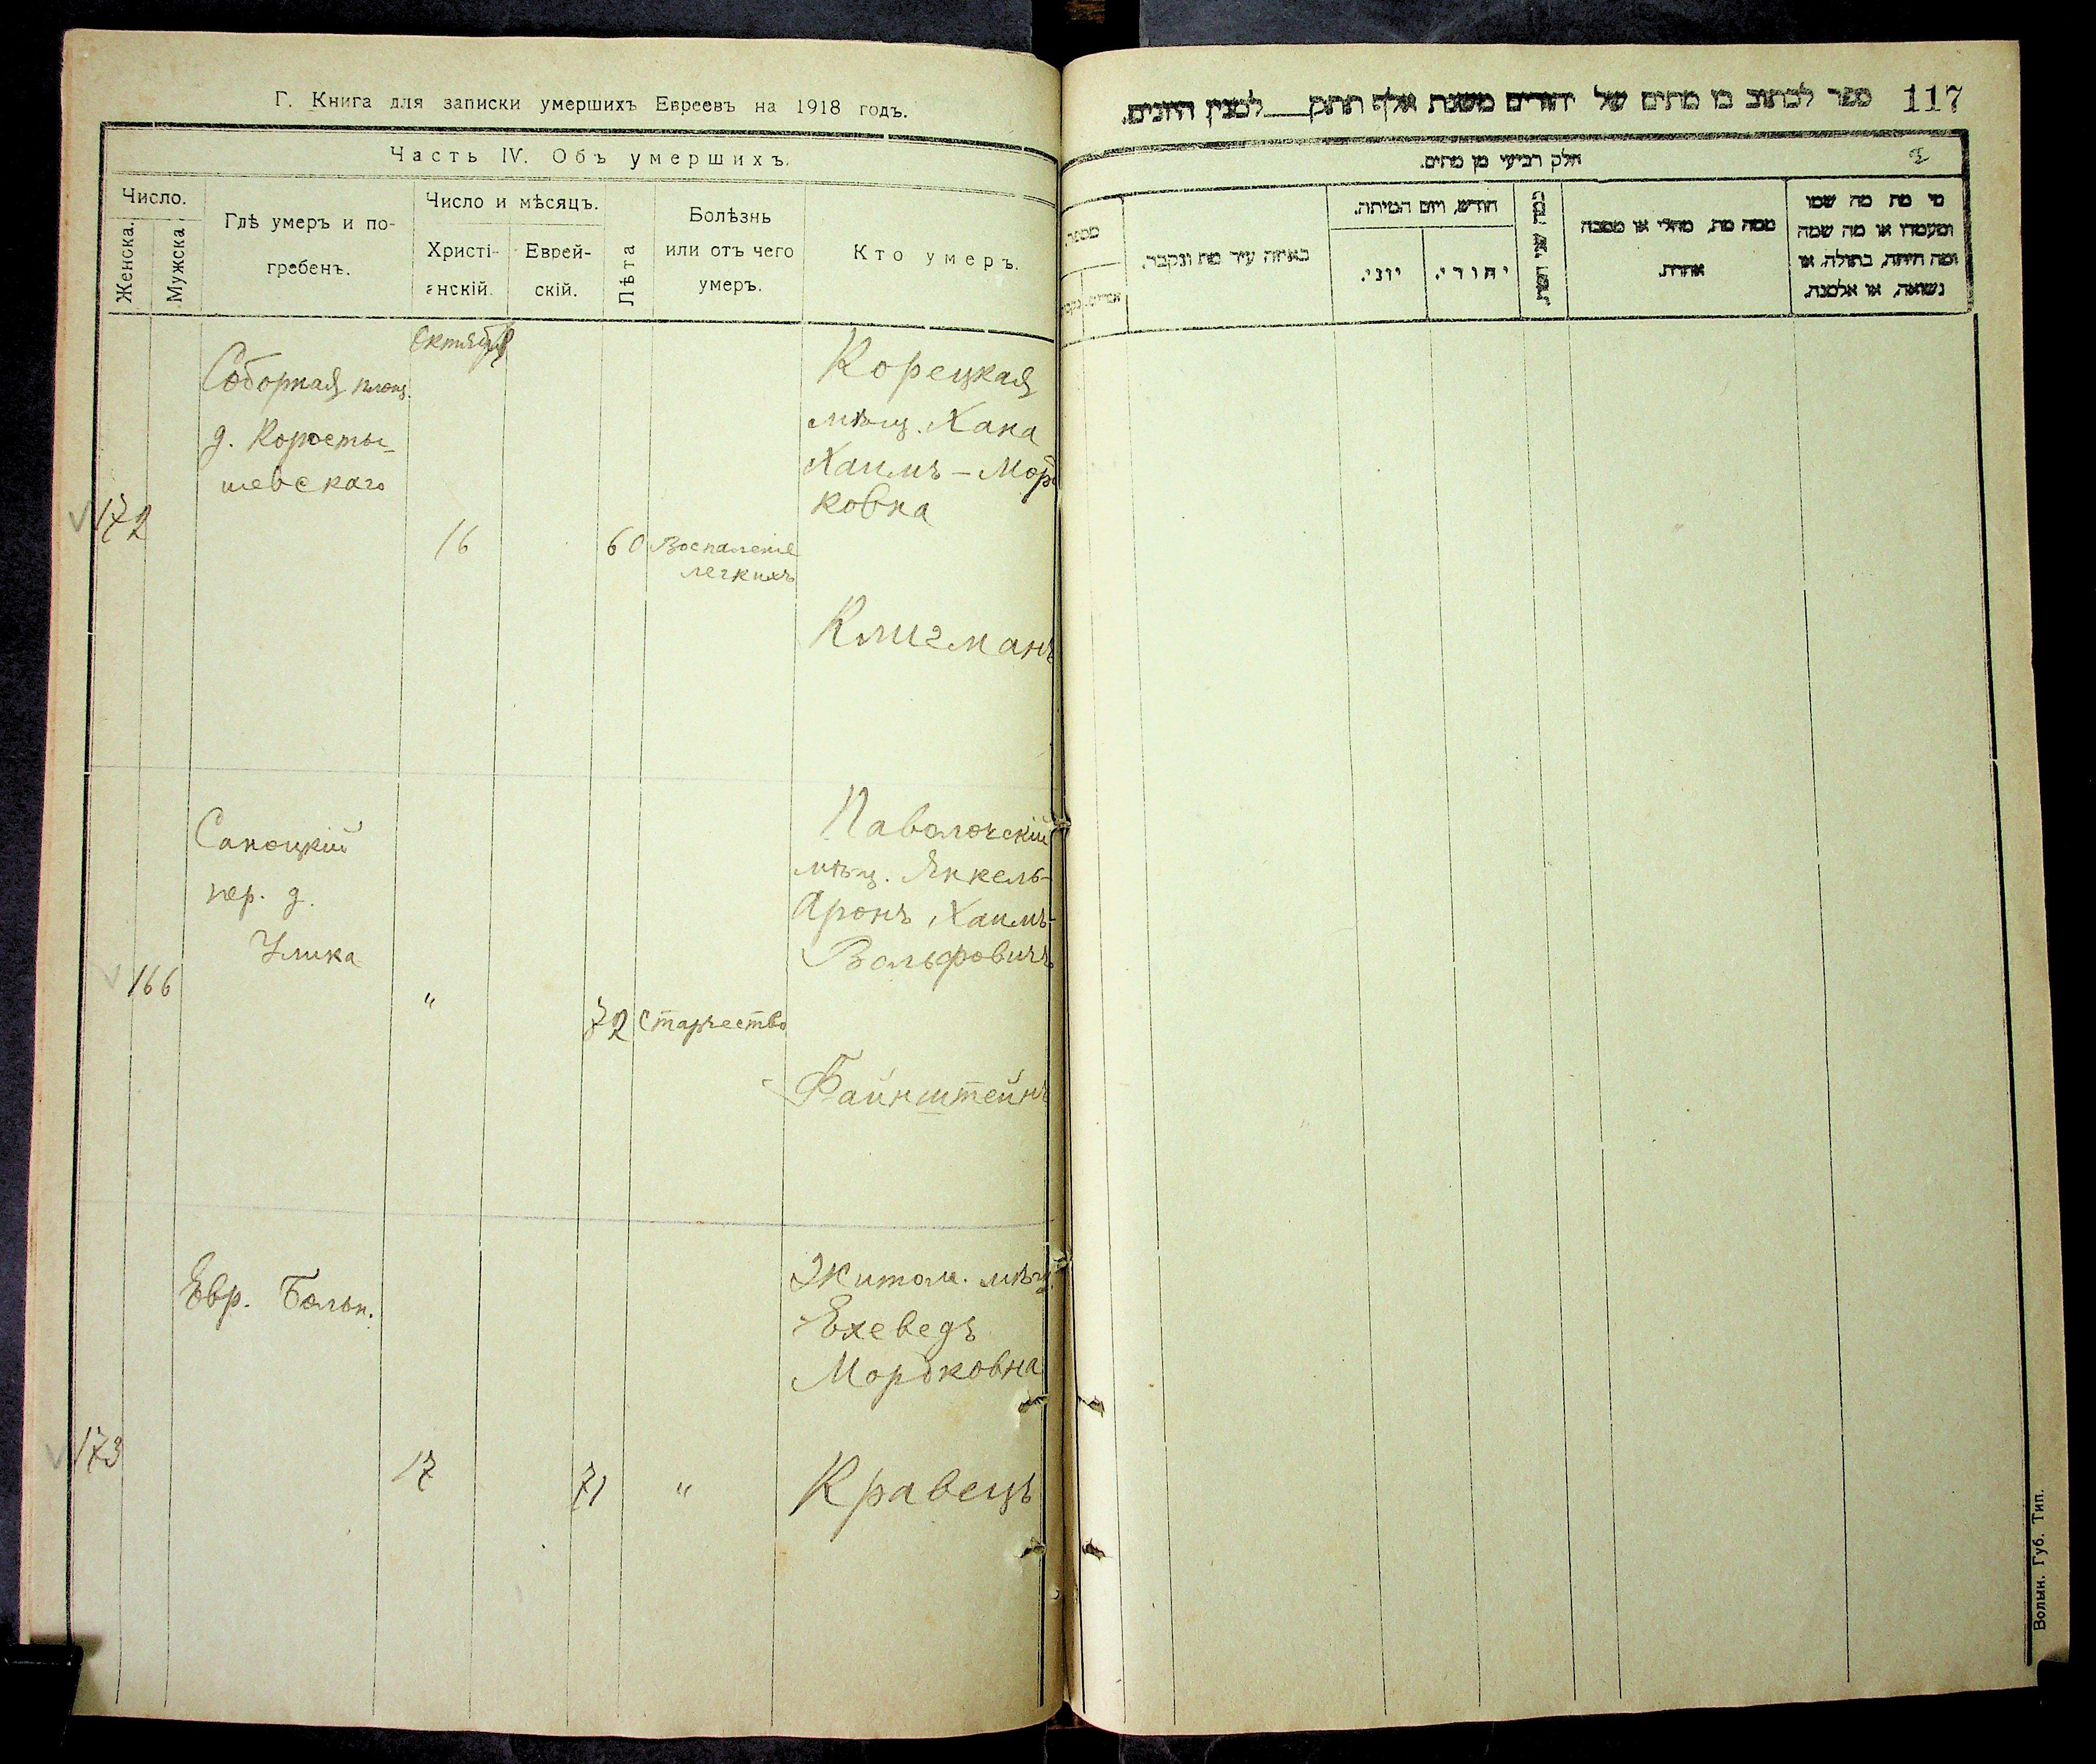 Г. Книга для записки умершихъ Евреевъ на 1918 годъ.
Часть IV. Объ умершихъ.
Число.
Женска.
Мужска.
Гдѣ умеръ и по-
гребенъ.
Число и мѣсяцъ.
Христі-
анскій.
Еврей-
скій.
Лѣта
Болѣзнь
или отъ чего
умеръ.
Кто умеръ.
Октября
172
Соборная площ.
д. Коросты-
шевскаго
16
60
Воспаленіе
легкихъ
Корецкая
мѣщ. Хана
Хаимъ-Морд
ковна
Клигманъ
166
пер. д.
Улика
"
72
Старчество
Паволочскій
мѣщ. Янкель-
Аронъ Хаимъ-
Вольфовичъ
Файнштейнъ
173
Евр. Больн.
17
71
"
Житом. мѣщ.
Ехеведъ
Мордковна
Кравецъ
ספר לכתוב בו מתים של יהודים משנת אלף תתק___למנין היונים.
117
חלק רביעי מן מתים.
2
מי מת מה שמו
ומעמדו או מה שמה
ומה היתה, בתולה, או
נשואה, או אלמנה.
ממה מת, מחלי או מסבה
אחרת.
חודש, ויום המיתה.
יהודי.
יוני.
באיזה עיר מת ונקבר.
מספר.
Волын. Губ. Тип.